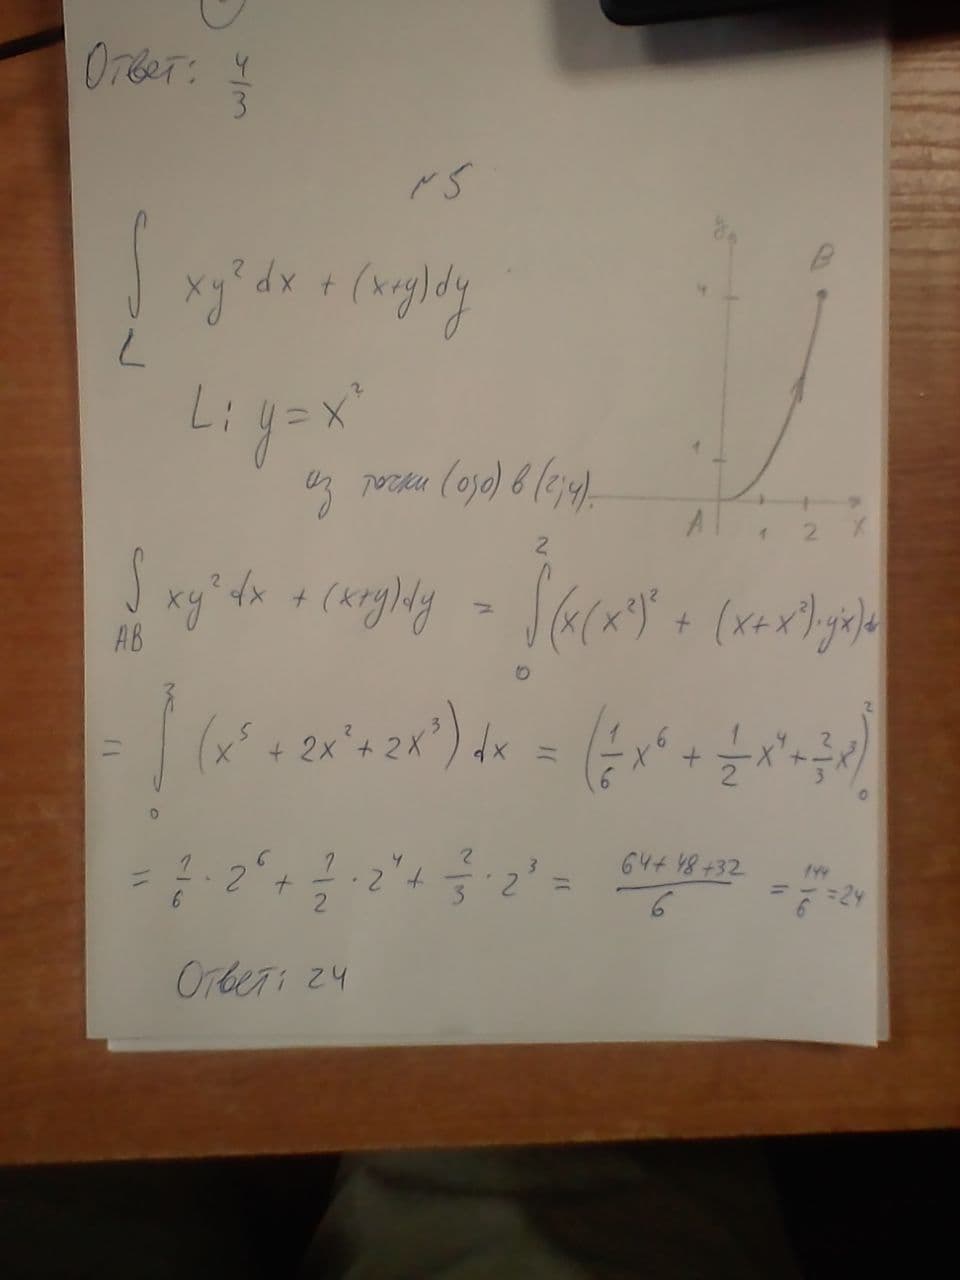 Ответ: 4/3
№5
∫_L xy² dx + (x+y)dy
L: y = x²
из точки (0;0) в (2;4).
y
B
4
1
A
1
2
x
∫_AB xy² dx + (x+y)dy = ∫_0^2 (x(x²)² + (x+x²)·y'x)dx
= ∫_0^2 (x⁵ + 2x² + 2x³) dx = (1/6 x⁶ + 1/2 x⁴ + 2/3 x³)|_0^2
= 1/6 · 2⁶ + 1/2 · 2⁴ + 2/3 · 2³ = (64+48+32)/6 = 144/6 = 24
Ответ: 24